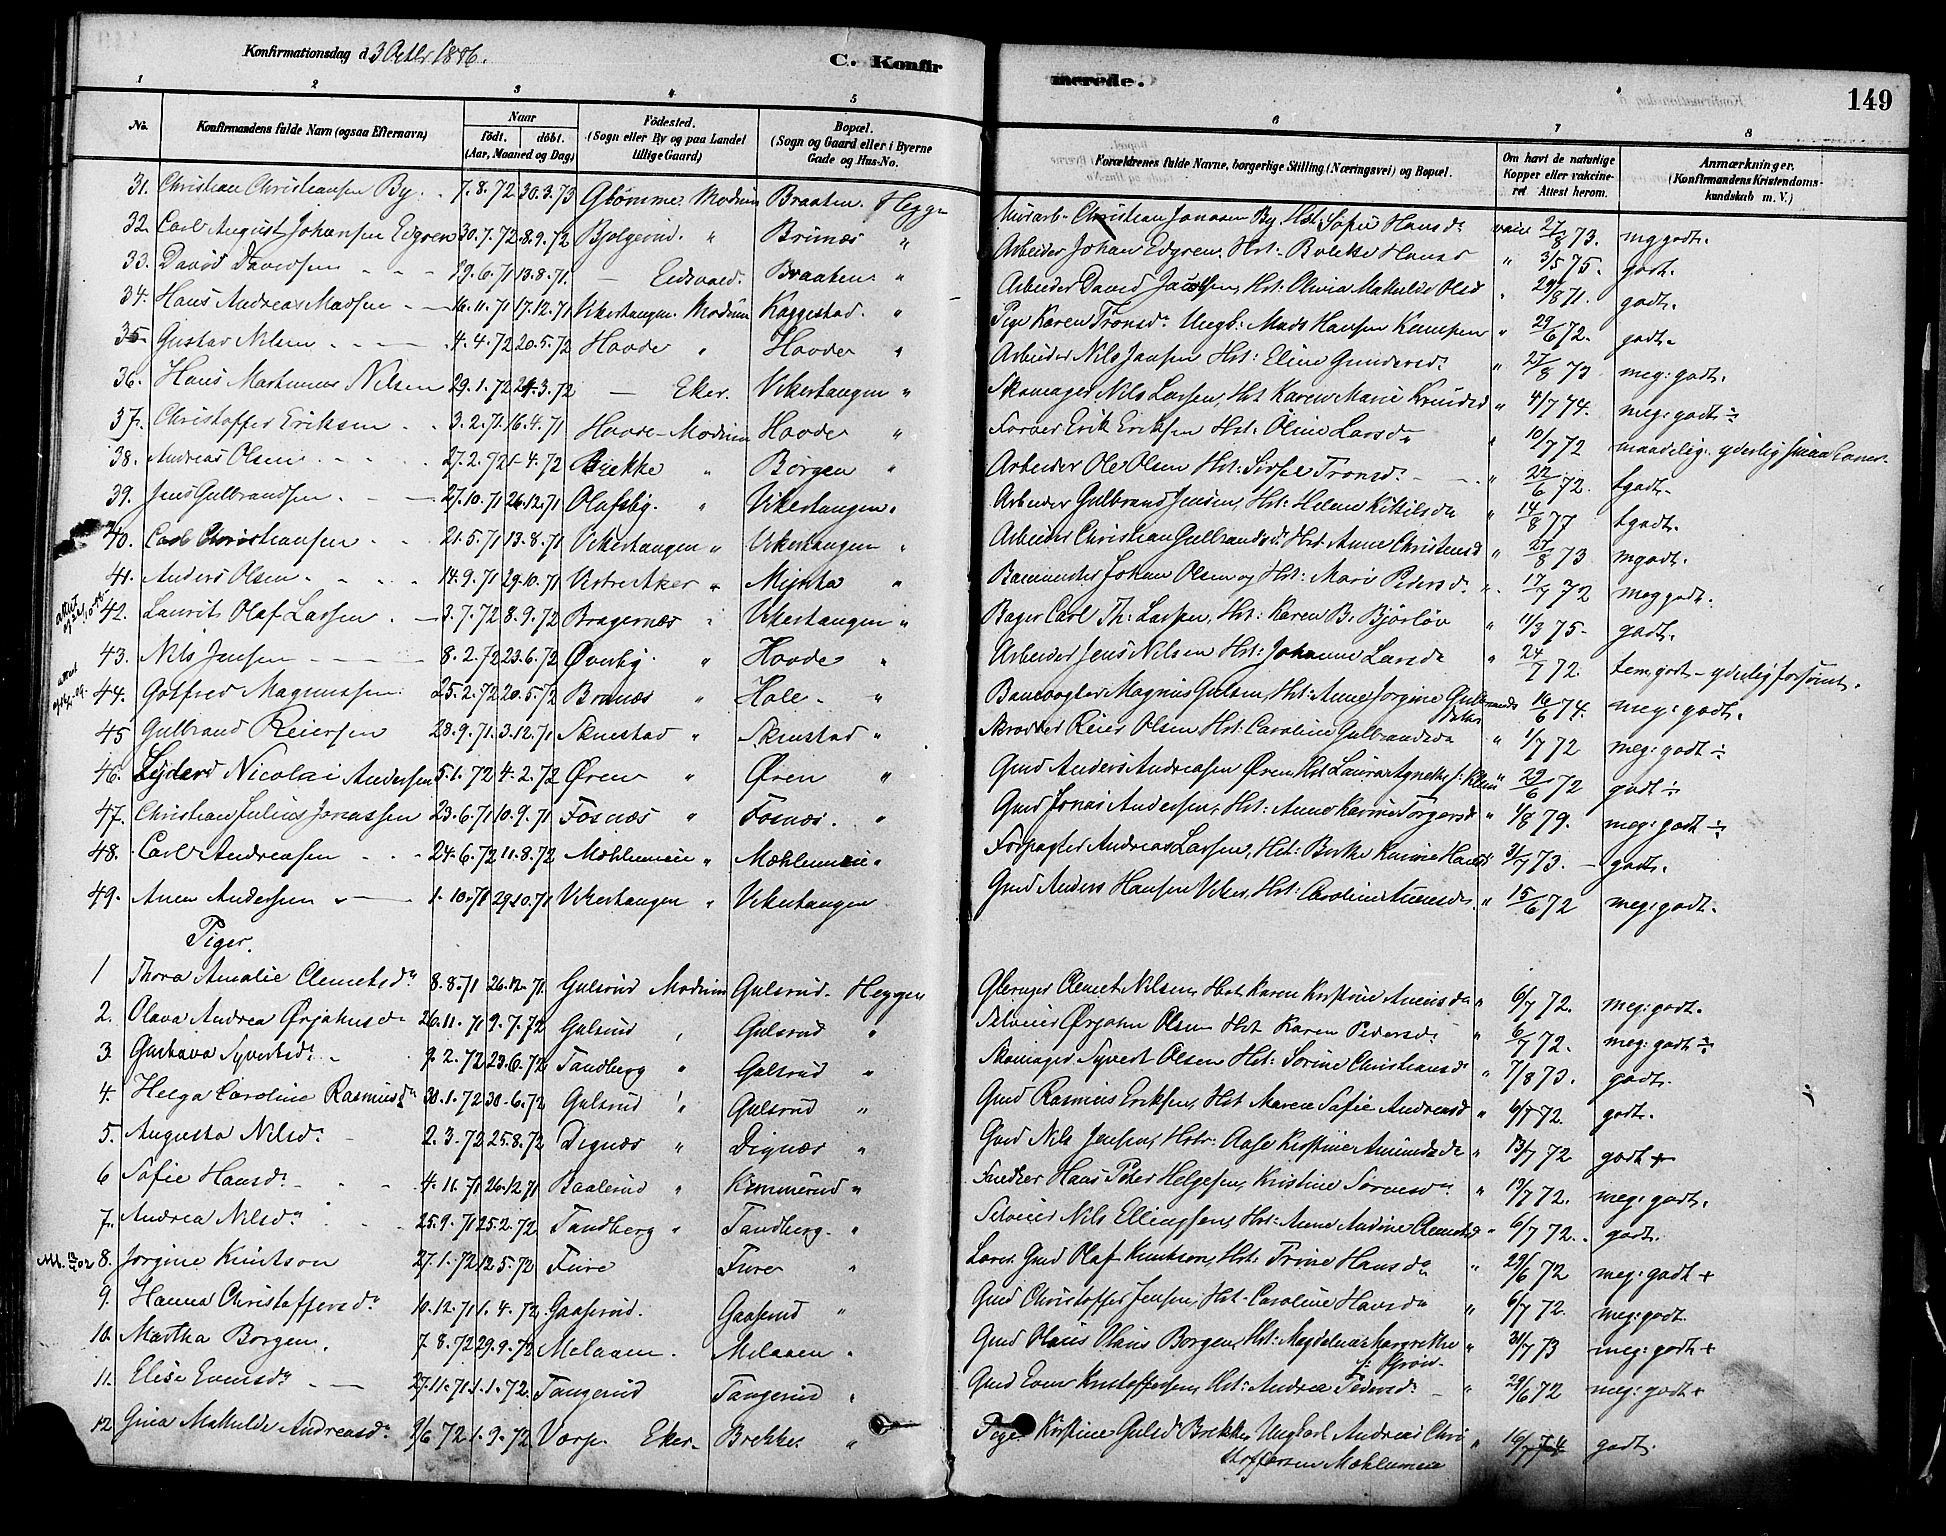 Konfirmationsdag d 3 Octbr 1886.
C. Konfirmerede.
149
1 2 3 4 5 6 7 8
No. Konfirmandens fulde Navn (ogsaa Efternavn) Naar födt. döbt. (Aar, Maaned og Dag) Födested. (Sogn eller By og paa Landet tillige Gaard) Bopæl. (Sogn og Gaard eller i Byerne Gade og Hus-No. Forældrenes fulde Navne, borgerlige Stilling (Næringsvei) og Bopæl. Om havt de naturlige Kopper eller vakcineret Attest herom. Anmærkninger. (Konfirmandens Kristendomskundskab m. V.)
31. Christian Christiansen By 7.8.72 30.3.73 Glömmen Modum Braaten Heggen Christian Jonasen By, Hst: Sofie Hansd. vacc 27/8 73. mg godt.
32. Carl August Johansen Edgren 30.7.72 8.9.72 Bjölgerud " Brunæs " Arbeider Johan Edgren, Hst: Hansd " 3/5 75. godt.
33. David Davidsen 19.6.71 13.8.71. Eidsvold. Braaten " Arbeider David Jacobsen, Hst: Olivia Mathilde Olsd " 29/8 71. godt.
34. Hans Andreas Madsen 16.11.71 17.12.71 Vikerhaugen Modum Kaggestad " Pige Karen Tronsd. Ungk: Mads Hansen Kampen " 29/6 72. godt.
35 Gustav Nilsen 4.4.72 20.5.72 Hovde " Hovde " Arbeider Nils Jansen Hst: Eline Gundersd. " 27/8 73 meg: godt.
36. Hans Marthinius Nilsen 29.1.72 24.3.72 Eker. Vikerhaugen " Skomager Nils Larsen, Hst Karen Marie " 4/7 74. meg: godt ÷
37. Christoffer Eriksen 3.2.71 16.4.71 Hovde Modum Hovde " Erik Eriksen Hst: Oline Larsd. " 10/7 72 maadelig. yderlig smaa
38. Andreas Olsen 27.2.72 1.4.72 Brekke " Börgen " Arbeider Ole Olsen Hst: Tronsd. " 22/6 72. tgodt.
39. Jens Gulbrandsen 27.10.71 26.12.71 Olafsby. " Vikerhaugen " Arbeider Gulbrand Jensen, Hst: Helene Kittilsd " 14/8 77 tgodt.
40. Carl Christiansen 21.5.71 13.8.71 Vikerhaugen " Vikerhaugen " Arbeider Christian Gulbrands. Hst: Anne Christensd " 27/8 73 mgodt.
41. Anders Olsen 14.9.71 29.10.71 Vestre Aker " Mynta " Banemester Johan Olsen og Hst: Mari Pedersd. " 17/7 72 meg godt.
42. Laurits Olaf Larsen 3.7.72 8.9.72 Bragernæs " Vikerhaugen " Bager Carl Th: Larsen, Hst: Karen B. Björlöv " 11/3 75. godt.
43. Nils Jensen 8.2.72 23.6.72 Överby. " Hovde " Arbeider Jens Nilsen Hst: Johanne Larsd " 24/7 72. tem: godt - yderlig forsömt.
44. Gotfred Magnussen 25.2.72 20.5.72 Brunæs " Hole " Banevogter Magnus Hst: Anne Jorgine Gulbrandsdatter " 16/6 74. meg: godt.
45 Gulbrand Reiersen 28.9.71. 3.12.71 Skinstad " Skinstad " Skrædder Reier Olsen Hst: Caroline Gulbrandsd " 1/7 72 meg: godt ÷
46. Nicolai Andersen 5.1.72 4.2.72 Ören " Ören " Gmd Anders Andreasen Ören Hst Laura Agnethe f: " 29/6 72 godt ÷
47. Christian Julius Jonassen 23.6.71 10.9.71 Fosnæs " Fosnæs. " Gmd Jonas Andersen, Hst: Anne Karine Torgersd " 1/8 79. meg: godt ÷
48. Carl Andreasen 24.6.72 11.8.72 Mæhlumeie " Mæhlumeie " Forpagter Andreas Larsen, Hst: Berthe Karine Hansd " 31/7 73. godt.
49. Anen Andersen 1.10.71 29.10.71 Vikerhaugen " Vikerhaugen Gmd Anders Hansen Viker, Hst: Caroline Anensd. " 15/6 72 meg: godt.
Piger.
1 Thora Amalie Clemetsd. 8.8.71 26.12.71. Gulsrud Modum Gulsrud Heggen Clemet Nilsen, Hst Karen Kristine " 6/7 72. meg: godt.
2. Olava Andrea Örjahnsd 26.11.71 9.7.72 Gulsrud " Gulsrud " Selveier Örjahn Olsen Hst Karen Pedersd. " 6/7 72. meg: godt ÷
3. Gustava Syvertsd. 9.2.72 23.6.72 Tandberg " Gulsrud " Skomager Syvert Olsen Hst: Sorine Christiansd " 7/8 73. godt.
4. Helga Caroline Rasmusd. 30.1.72 30.6.72 Gulsrud " Gulsrud " Gmd Rasmus Eriksen, Hst Maren Sofie Andreasd " 6/7 72. godt.
5. Augusta Nilsd. 2.3.72 25.8.72 Dignæs " Dignæs " Gmd Nils Jensen, Hstr: Aase Kristine Amundsd " 13/7 72 godt +
6 Sofie Hansd. 4.11.71 26.12.71 Baalerud " Kimmerud " Snedker Hans Peter Helgesen, Kristine " 19/7 72. meg: godt.
7. Andrea Nilsd. 25.9.71 25.2.72. Tandberg " Tandberg. " Selveier Nils Ellingsen, Hst: Anne Andine Clemetsd " 6/7 72. godt.
8. Jorgine Knutson 27.1.72 12.5.72 Fure Fure " Gmd Olaf Knutson, Hst: Trine Hansd. " 29/6 72 meg: godt +
9. Hanna Christoffersd. 10.12.71 1.4.72. Gaaserud. Gaaserud " Gmd Christoffer Jensen, Hst: Caroline Hansd " 6/7 72. meg: godt
10. Martha Borgen. 7.8.72 29.9.72 Melaaen. Melaaen " Gmd Olaus Borgen, Hst: Magdalena Margrethe f: Grön " 31/7 73 meg: godt +
11. Elise Evensd. 27.11.71 1.1.72. Tangerud Tangerud " Gmd Even Kristoffersen, Hst: Andrea Pedersd. " 29/6 72 meg: godt +
12 Gina Mathilde Andreasd. 9/6 72 1.9.72 Vorp Eker Brekke " Pige Kirstine Gulsd Brekke, Ungkarl Andreas Christoffersen Mæhlumeie " 16/7 74 godt.